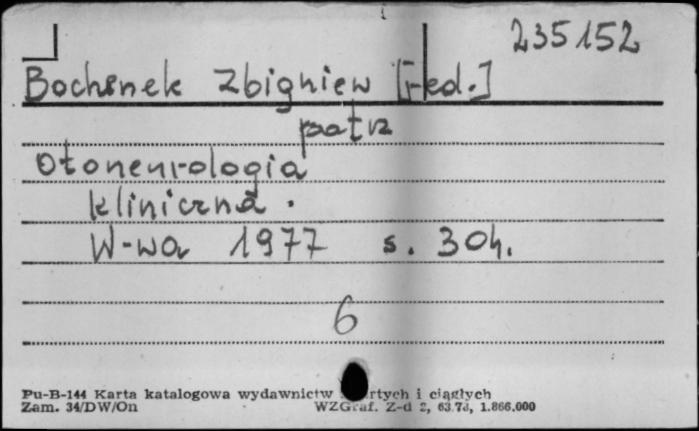 235152
Bochenek Zbigniew [red.]
patrz
Otoneurologia
kliniczna.
W-wa 1977 s. 304.
6
Pu-B-144 Karta katalogowa wydawnictw i ciągłych
Zam. 34/DW/On WZGraf. Z-d 2, 1.866.000